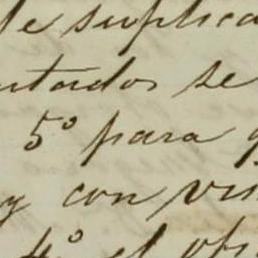 le suplica
ntados se
5º para q
y con vis
4º el ofi